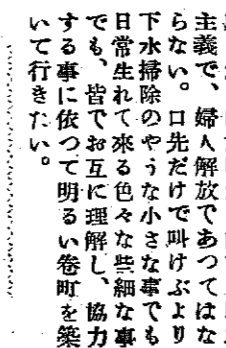 主義で、婦人解放であつてはな
らない。口先だけで叫けぶより
下水掃除のやうな小さな事でも
日常生れて來る色々な些細な事
でも、皆でお互に理解し、協力
する事に依つて明るい卷町を築
いて行きたい。